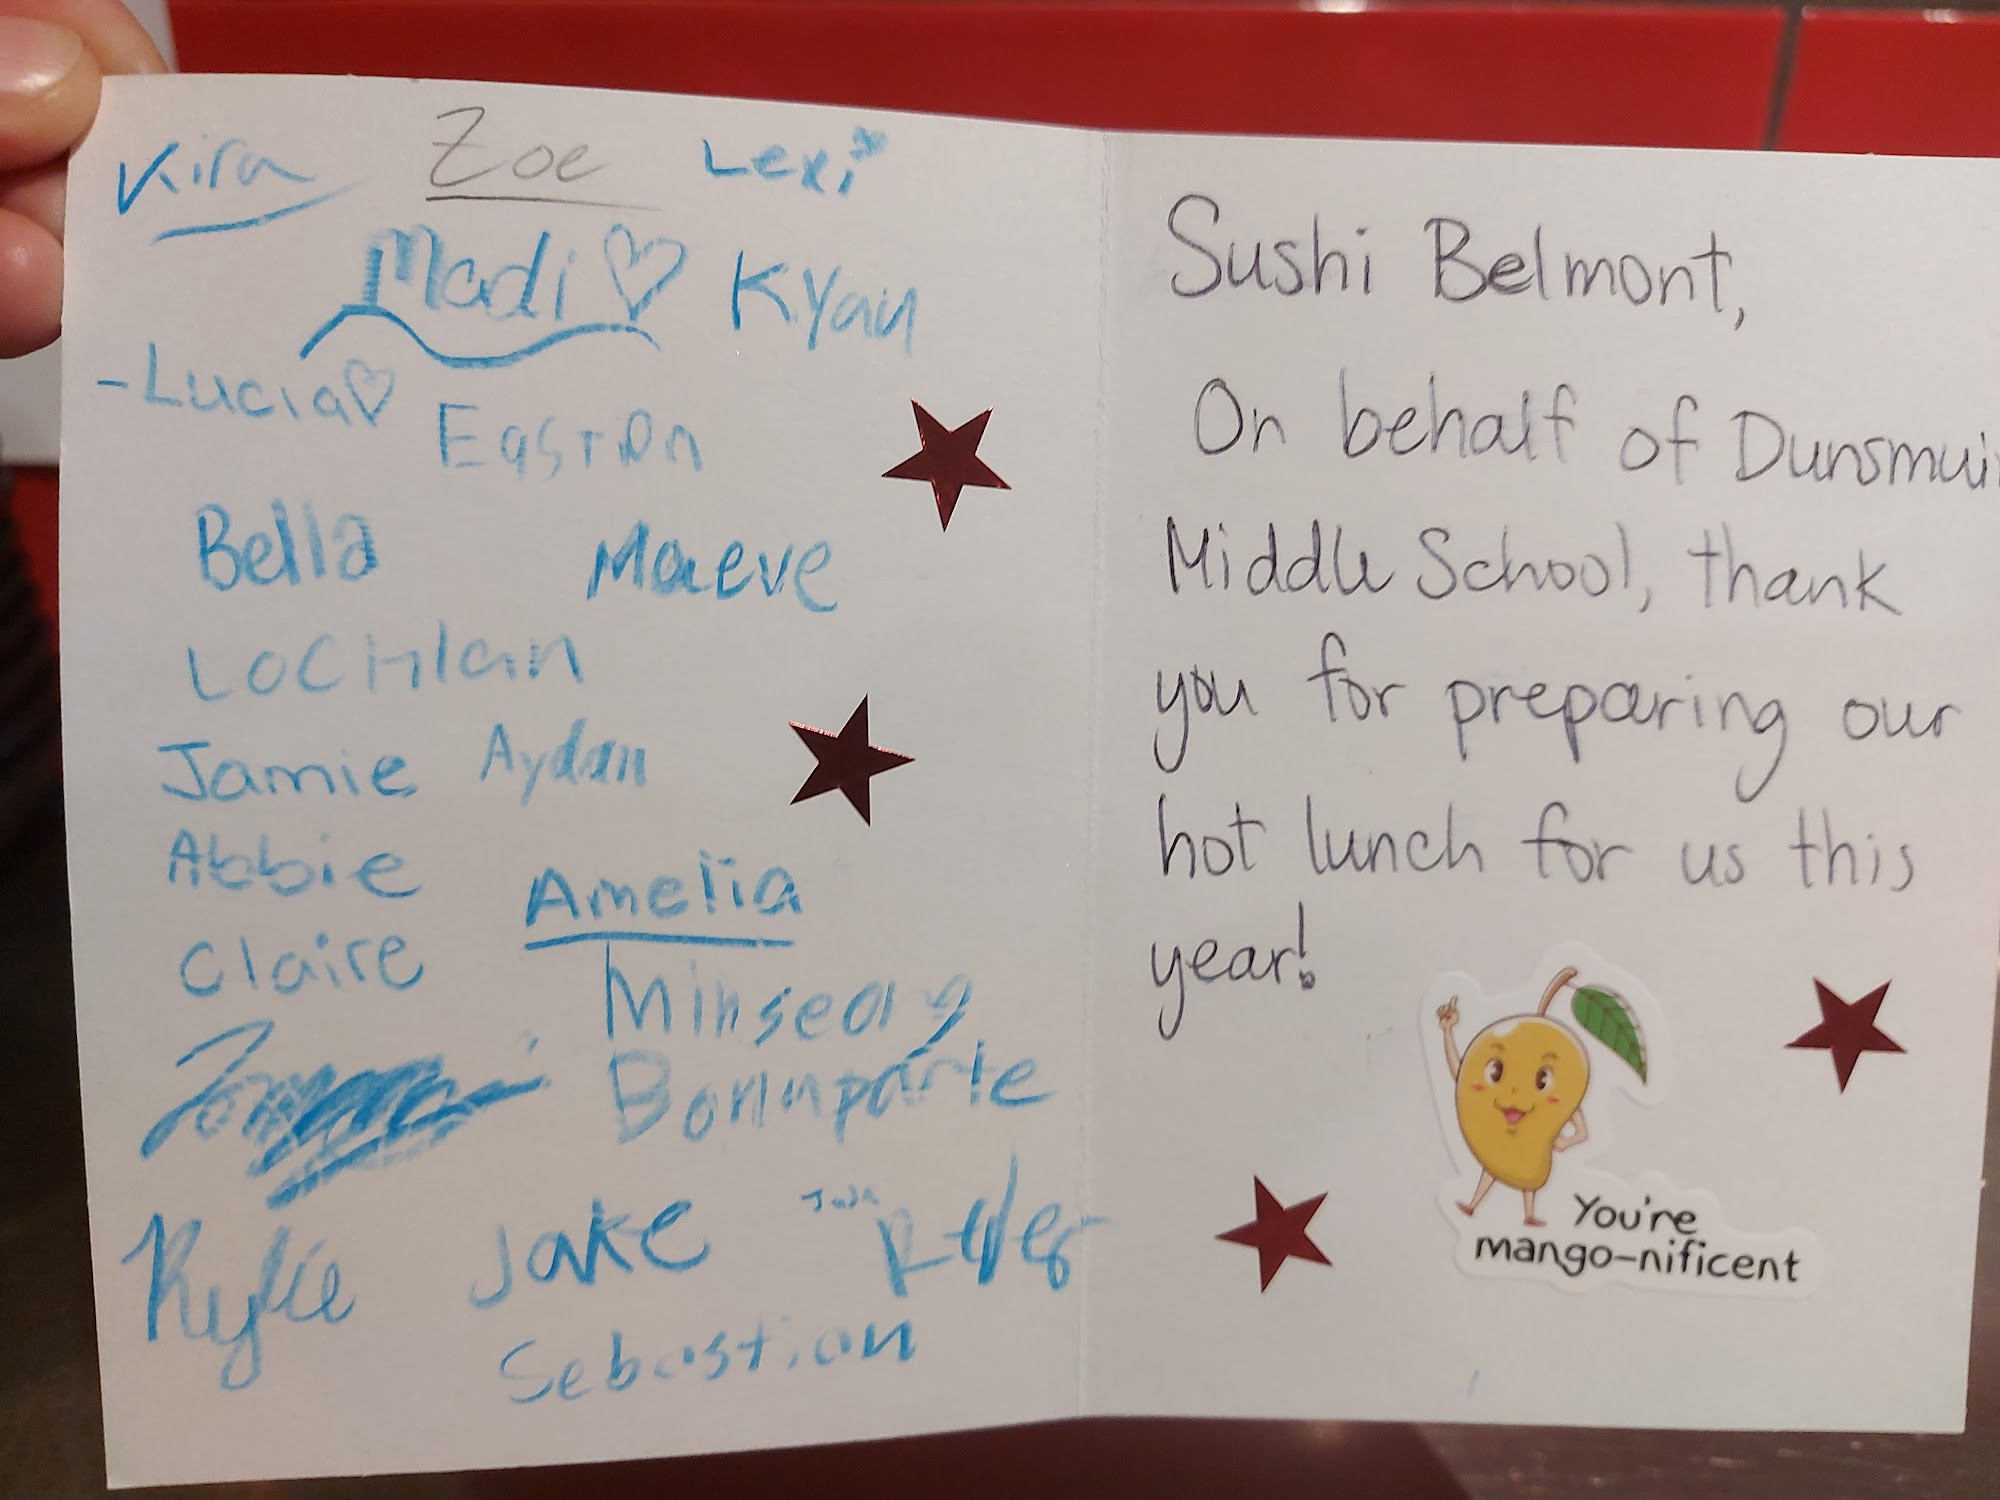 Kira Zoe Lexi
Madi Kyan
-Lucia Easton
Bella Maeve
Lochlan
Jamie Aydan
Abbie Amelia
Claire Minseong
Bonnparte
Kylie Jake
Sebastian
Sushi Belmont,
On behalf of Dunsmuir
Middle School, thank
you for preparing our
hot lunch for us this
year!
You're
mango-nificent